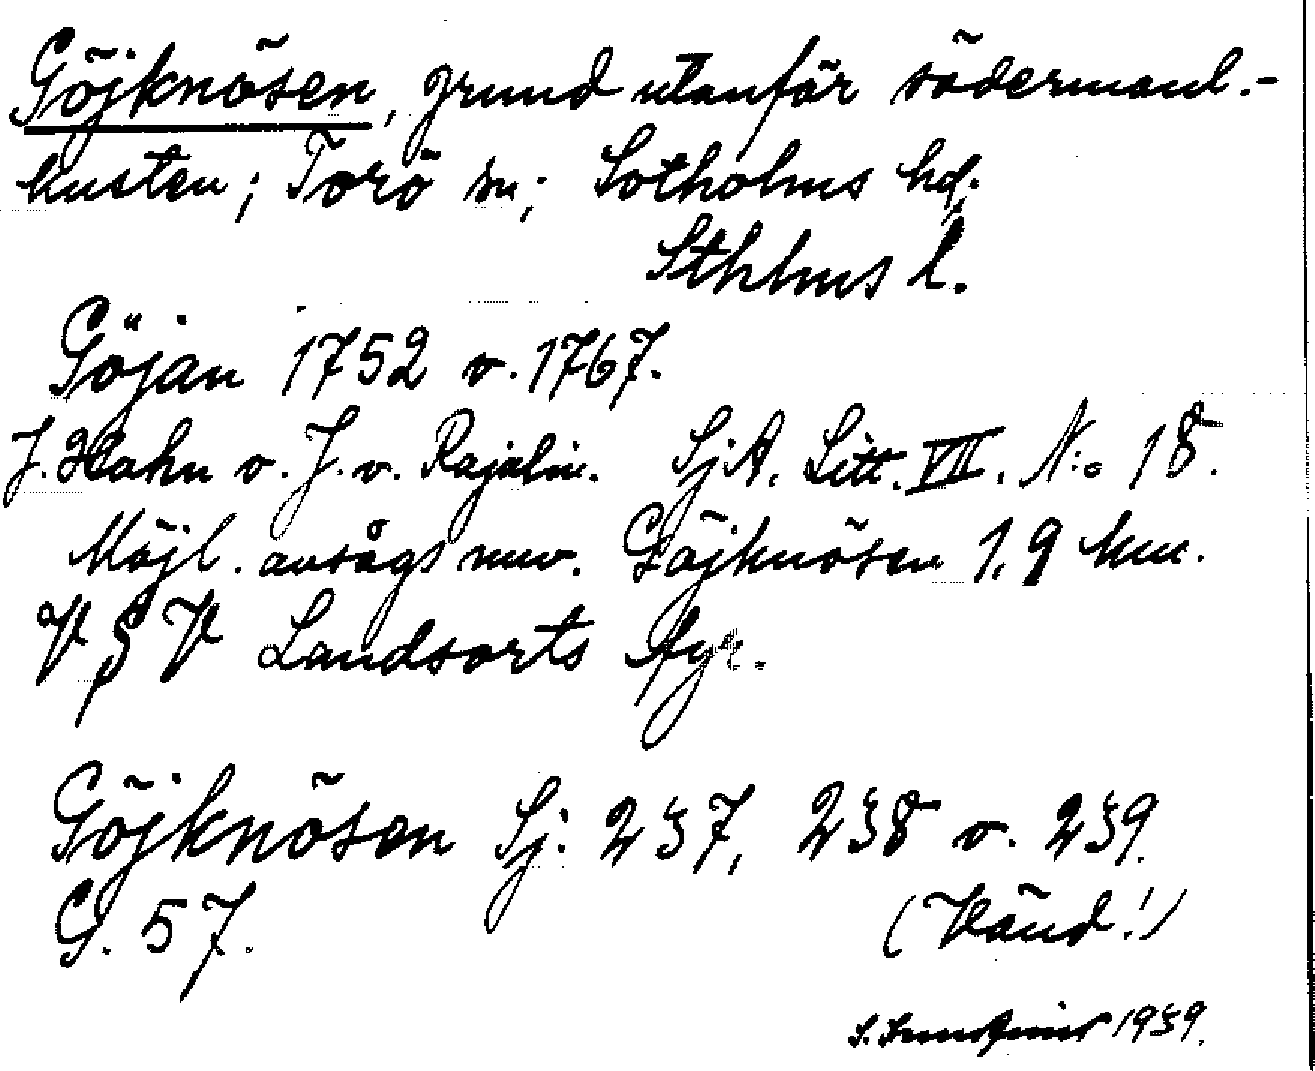 Göjknösen, grund utanför södermanl.-
kusten; Torö sn; Sotholms hd.
Sthlms l.
Göjan 1752 o. 1767.
J. Hahn o. J. v. Rajalin. SjA. Litt. VII. N:o 18.
Möjl. avsågs nuv. Göjknösen 1,9 km.
V S V Landsorts fyr.
Göjknösen Sj. 237, 238 o. 239.
G. 57.
(Vänd!)
S. 1939.